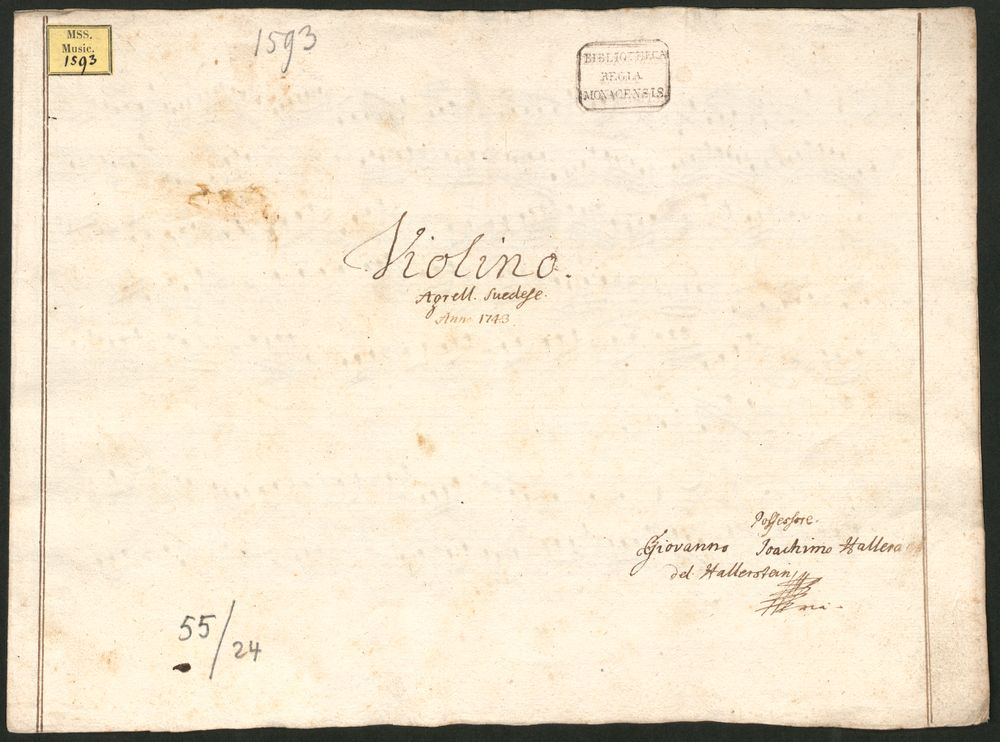 MSS.
Music.
1593
1593
BIBLIOTHECA
REGIA
MONACENSIS.
Violino.
Agrell. Suedese.
Anno 1743.
Possessore.
Giovanno Joachimo Hallera
del Hallerstein
55/24